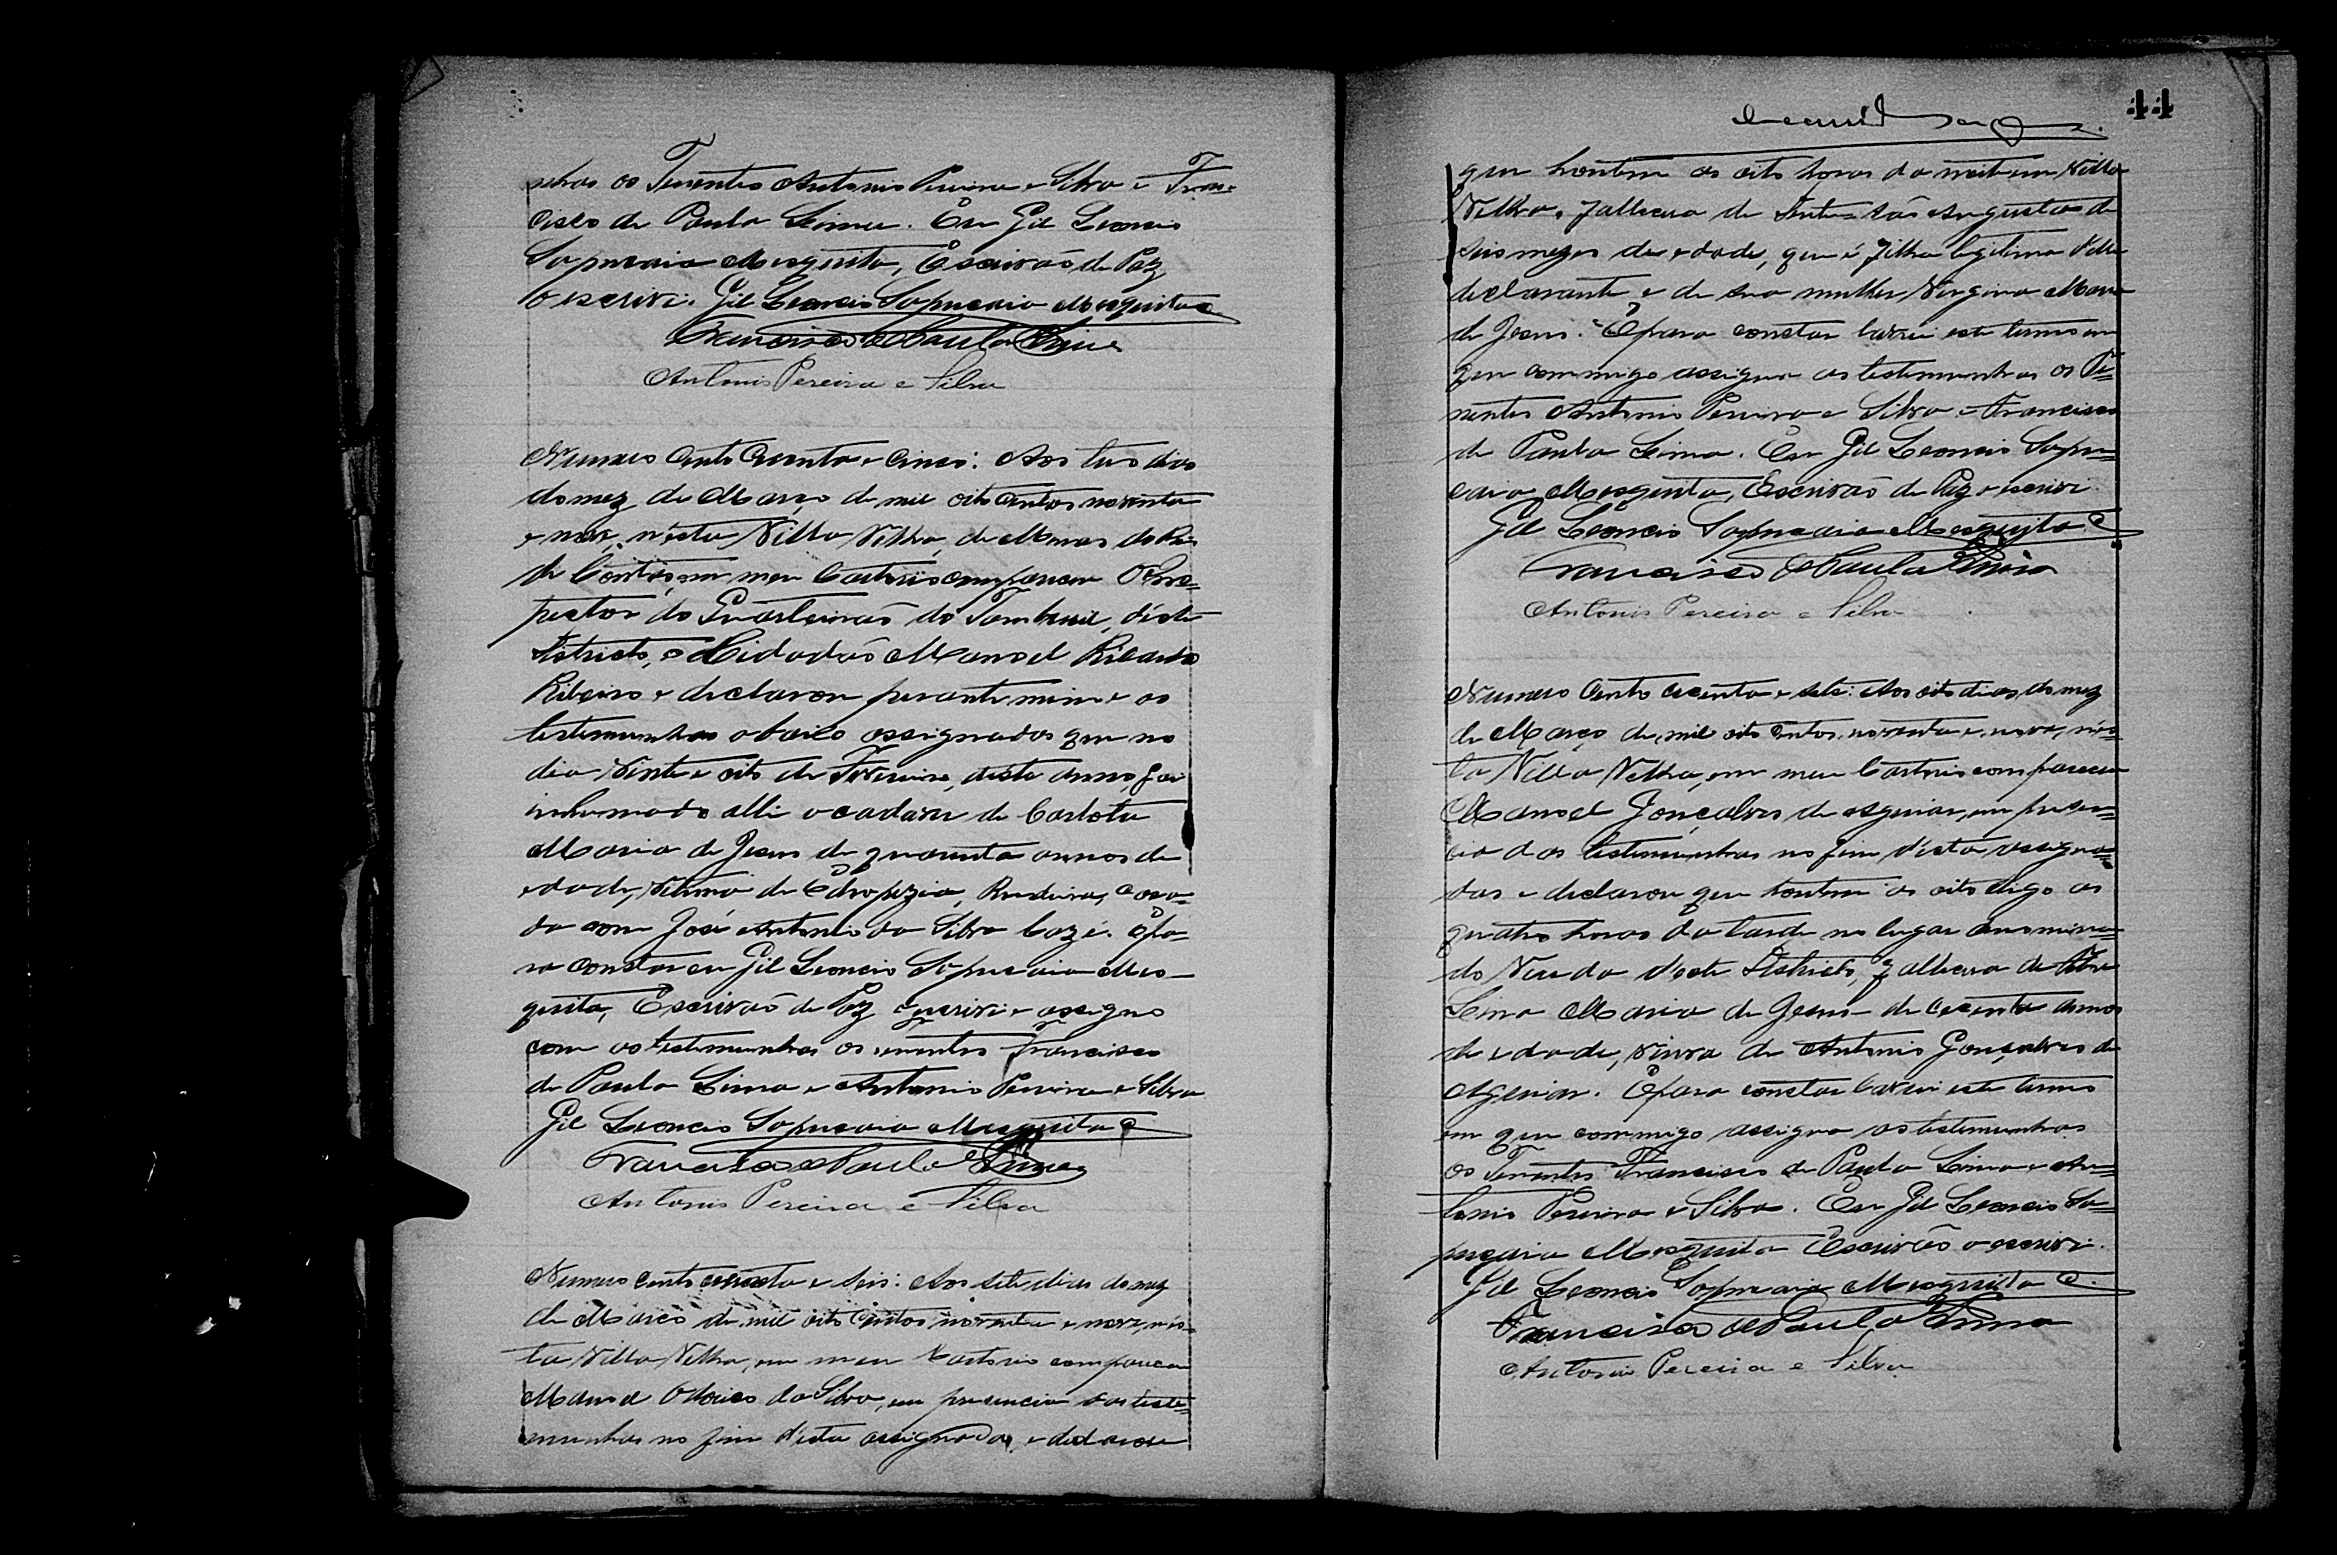 nhas os Tenentes Antonio Pereira e Silva e Fran=
cisco de Paula Lima. Eu Gil Leoncio
Sapucaia Mesquita, Escrivão de Paz
o escrivi. Gil Leoncio Sapucaia Mesquita
Francisco de Paula Lima
Antonio Pereira e Silva
Numero cento cecenta e cinco. Aos tres dias
do mez de Março de mil oito centos noventa
e nove, n'esta Villa Velha, de Minas do Rio
de Contas, em meu Cartorio compareceu O Ins=
pector do Quarteirão do Tamburil, d'este
Districto, o Cidadão Manoel Ricardo
Ribeiro e declarou perante mim e as
testemunhas abaixo assignadas que no
dia vinte e oito de Fevereiro, deste anno, foi
inhumado alli o cadaver de Carlota
Maria de Jesus de quarenta annos de
edade, victima de Edropezia, Rendeira, casa=
da com José Antonio da Silva Cazé. E pa=
ra constar eu Gil Leoncio Sapucaia Mes-
quita, Escrivão de Paz escrivi e assigno
com as testemunhas os Tenentes Francisco
de Paula Lima e Antonio Pereira e Silva
Gil Leoncio Sapucaia Mesquita
Francisco de Paula Lima
Antonio Pereira e Silva
Numero cento cecenta e seis: Aos sete dias do mez
de Março de mil oito centos noventa e nove, n'es-
ta Villa Velha, em meu Cartorio compareceu
Manoel da Silva, em presencia das teste=
munhas no fim d'esta assignadas, e declarou
44
que hontem as oito horas da noite em Villa
Velha, falleceu de Augusta de
seis mezes de edade, que é filha legitima delle
declarante e de sua mulher Virgina Maria
de Jesus. E para constar lavrei este termo em
que commigo assigna as testemunhas os Te=
nentes Antonio Pereira e Silva e Francisco
de Paula Lima. Eu Gil Leoncio Sapu=
caia Mesquita, Escrivão de Paz o escrivi.
Gil Leoncio Sapucaia Mesquita
Francisco de Paula Lima
Antonio Pereira e Silva
Numero cento cecenta e sete: Aos oito dias do mez
de Março de mil oito centos noventa e nove, n'es=
ta Villa Velha, em meu Cartorio compareceu
Manoel Gonçalves de Aguiar, em presen=
cia das testemunhas no fim d'esta assigna=
das e declarou que hontem as oito digo as
quatro horas da tarde no lugar denomina=
do Vereda d'este Districto, falleceu de
Lina Maria de Jesus de cecenta annos
de edade, viuva de Antonio Gonçalves de
Aguiar. E para constar lavrei este termo
em que commigo assigna as testemunhas
os Tenentes Francisco de Paula Lima e An=
tonio Pereira e Silva. Eu Gil Leoncio Sa=
pucaia Mesquita Escrivão o escrivi.
Gil Leoncio Sapucaia Mesquita
Francisco de Paula Lima
Antonio Pereira e Silva